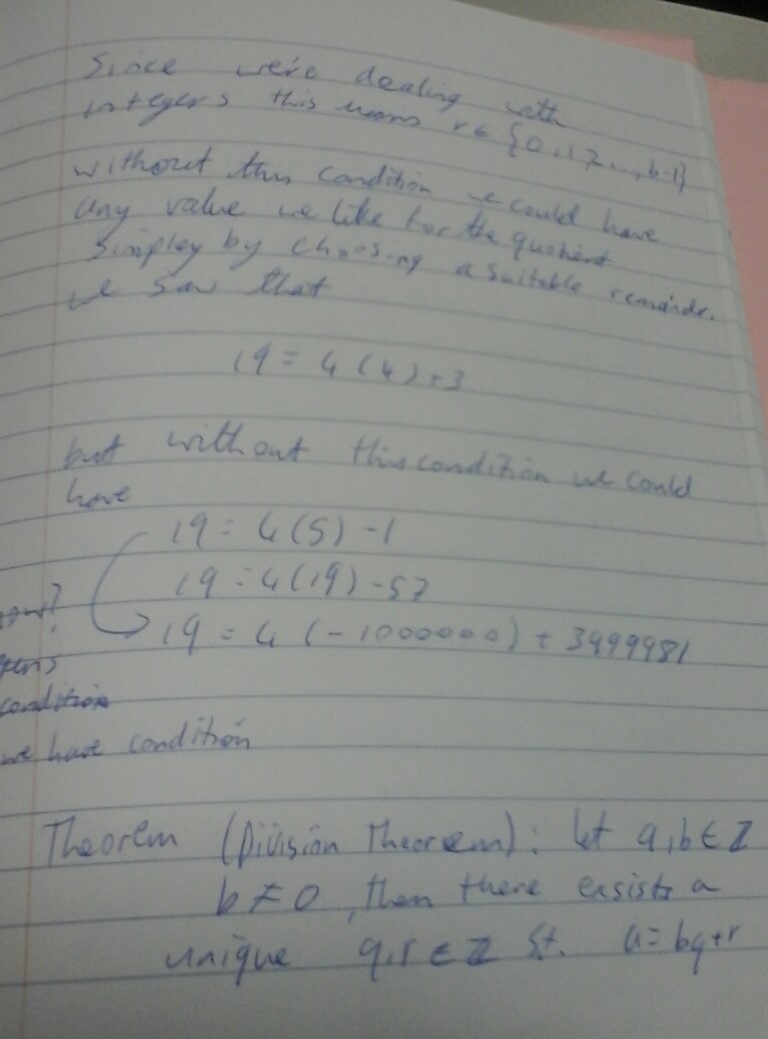 Since we're dealing with
integers this means r ∈ {0,1,2...,b-1}
without this condition we could have
any value we like for the quotient
simpley by choosing a suitable remainder.
we saw that
19 = 4(4)+3
but without this condition we could
have
19 = 4(5) - 1
19 = 4(19) - 57
19 = 4 (-1000000) + 3999981
condition
we have condition
Theorem (Division Theorem): let a,b ∈ Z
b ≠ 0, then there exsists a
unique q,r ∈ Z s.t. a = bq+r